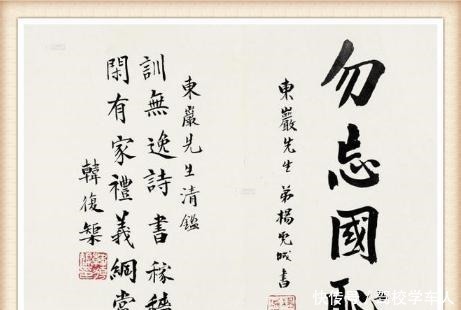 勿忘國恥
東巖先生 弟楊虎城書
東巖先生清鑑
訓無逸詩書稼穡
閑有家禮義綱常
韓復榘
快传号/驾校学车人